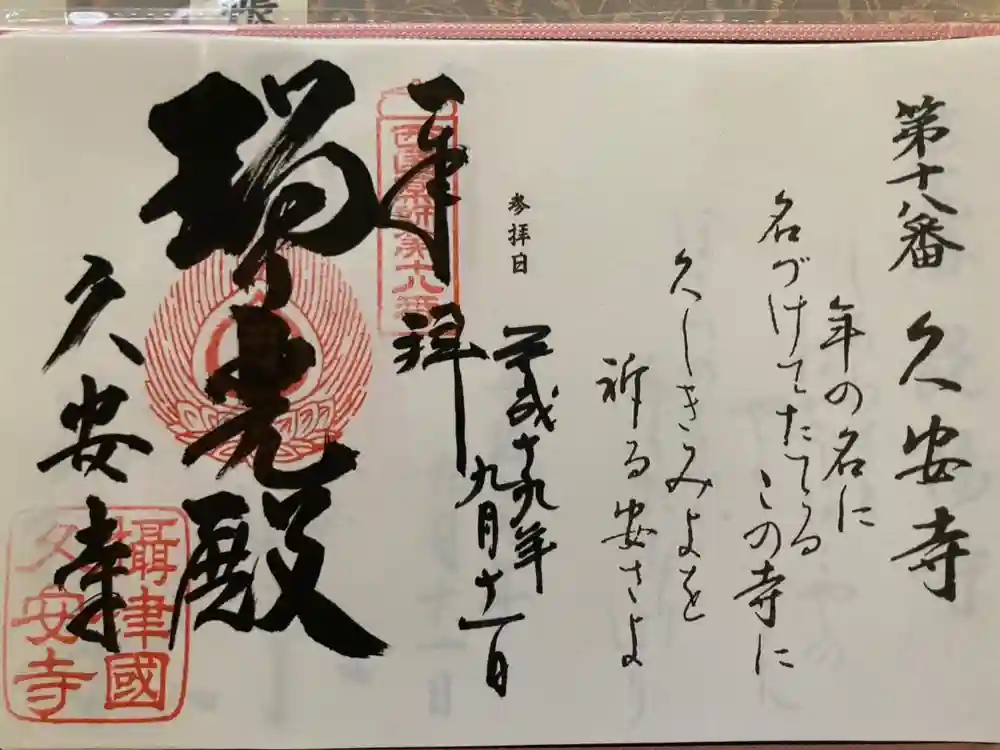 帳
第十八番 久安寺
年の名に
名づけてたてる
この寺に
久しきみよを
祈る安さよ
参拝日
平成十九年
九月十一日
奉拝
西国薬師第十八番
瑠光殿
久安寺
攝津國
久安寺